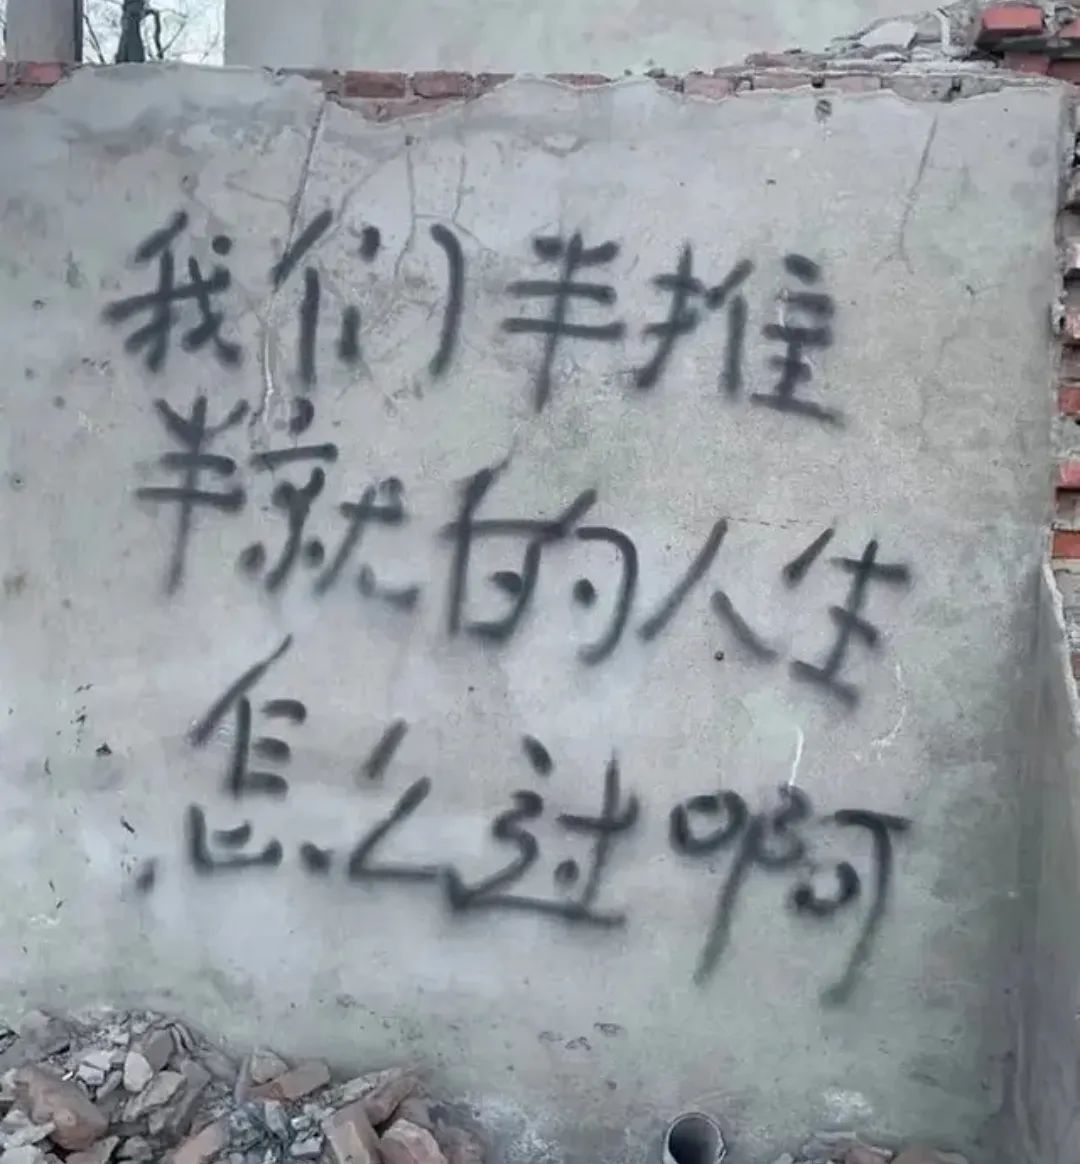 我们半推
半就的人生
怎么过啊